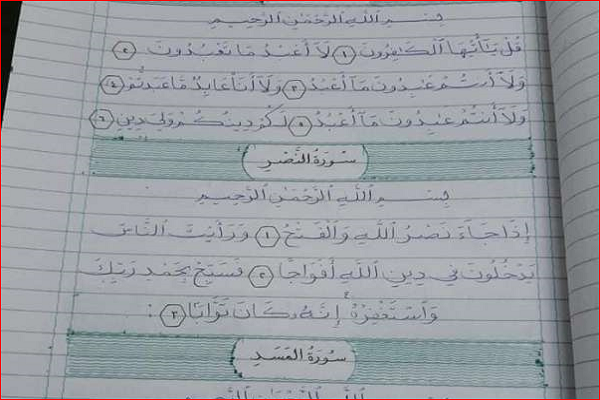 بِسْمِ ٱللَّهِ ٱلرَّحْمَٰنِ ٱلرَّحِيمِ
قُلْ يَٰٓأَيُّهَا ٱلْكَٰفِرُونَ ١ لَآ أَعْبُدُ مَا تَعْبُدُونَ ٢
وَلَآ أَنتُمْ عَٰبِدُونَ مَآ أَعْبُدُ ٣ وَلَآ أَنَا۠ عَابِدٌ مَّا عَبَدتُّمْ ٤
وَلَآ أَنتُمْ عَٰبِدُونَ مَآ أَعْبُدُ ٥ لَكُمْ دِينُكُمْ وَلِيَ دِينِ ٦
سُورَةُ النَّصْرِ
بِسْمِ ٱللَّهِ ٱلرَّحْمَٰنِ ٱلرَّحِيمِ
إِذَا جَآءَ نَصْرُ ٱللَّهِ وَٱلْفَتْحُ ١ وَرَأَيْتَ ٱلنَّاسَ
يَدْخُلُونَ فِي دِينِ ٱللَّهِ أَفْوَاجًا ٢ فَسَبِّحْ بِحَمْدِ رَبِّكَ
وَٱسْتَغْفِرْهُ إِنَّهُۥ كَانَ تَوَّابًۢا ٣
سُورَةُ المَسَدِ